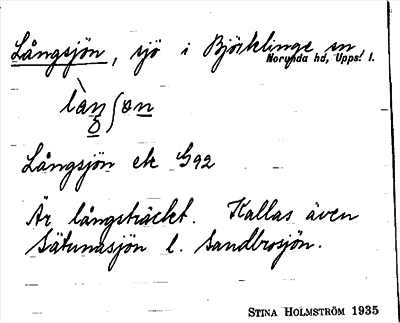 Långsjön, sjö i Björklinge sn
Norunda hd, Uppsl l.
Långsjön ek G92
Är långsträckt. Kallas även
Sätunasjön l. Sandbrosjön.
STINA HOLMSTRÖM 1935